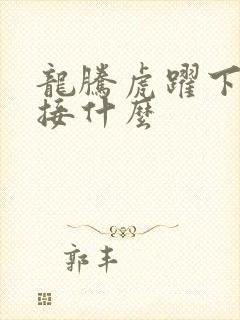 龍騰虎躍下
接什麼
郭丰